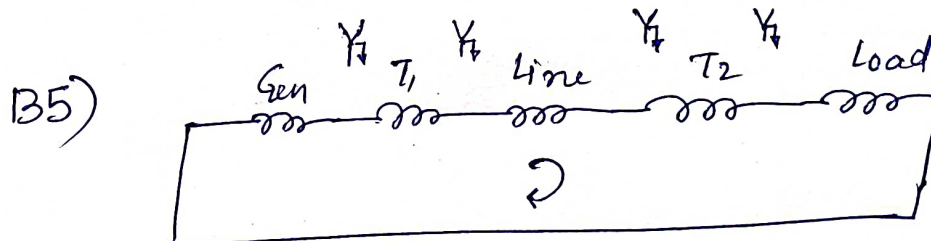 B5)
Gen T1 Line T2 Load